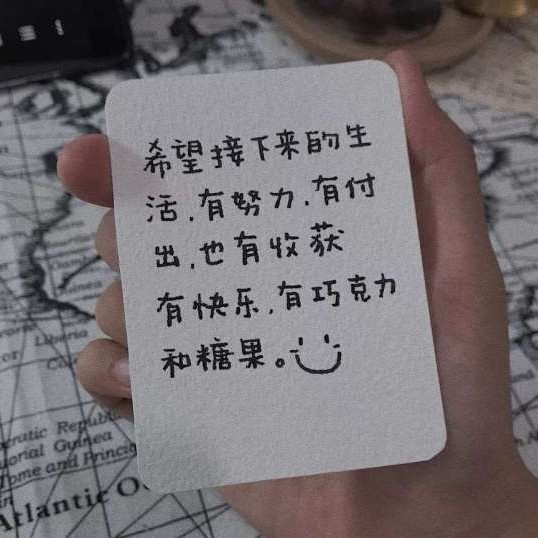 希望接下来的生
活,有努力,有付
出,也有收获
有快乐,有巧克力
和糖果。
Liberia
cratic Republic
uorial Guinea
Tome and Princip
Atlantic O